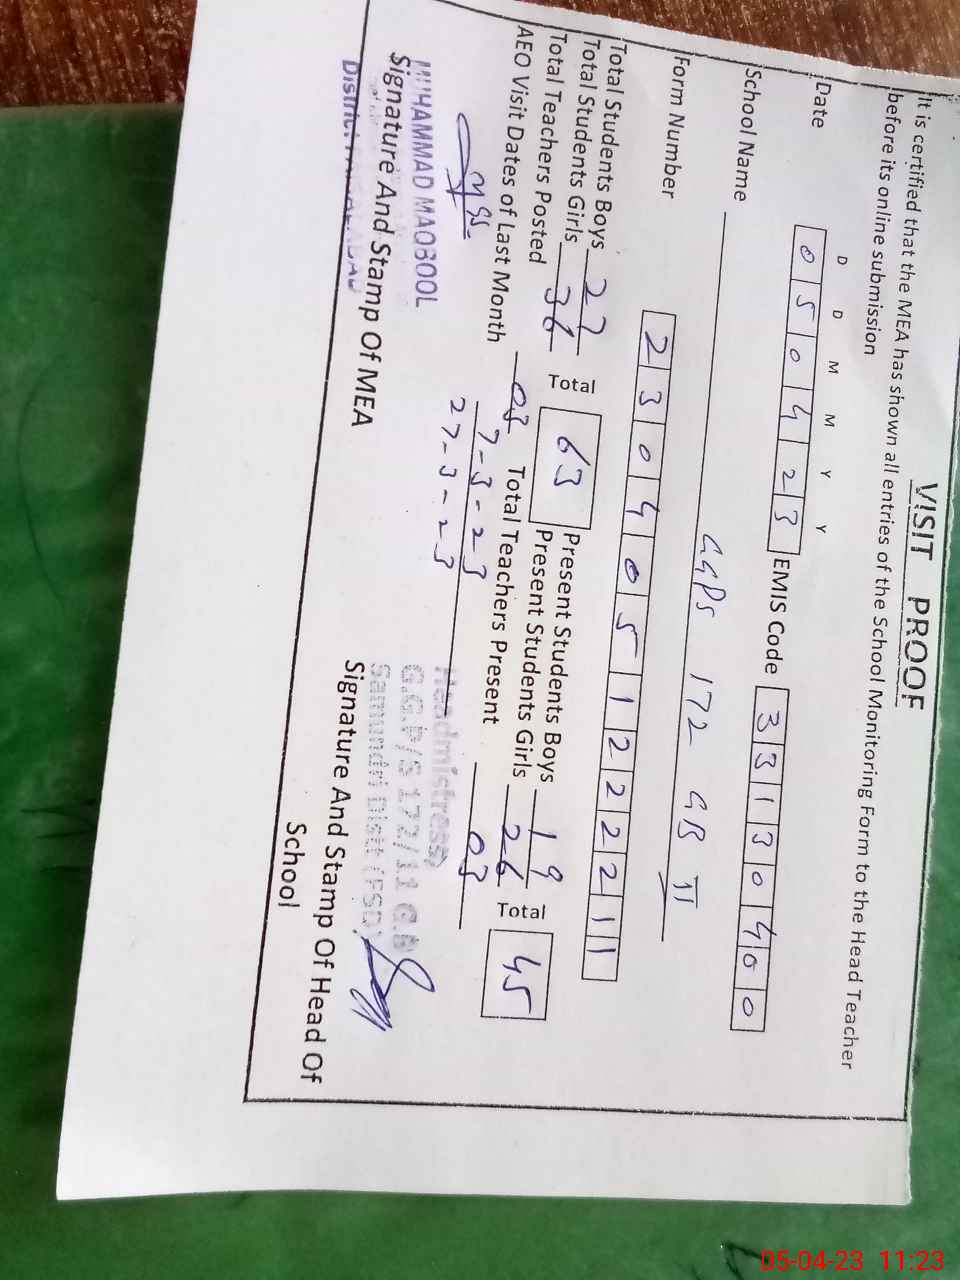 VISIT PROOF
It is certified that the MEA has shown all entries of the School Monitoring Form to the Head Teacher
before its online submission
D D M M Y Y
Date 0 5 0 4 2 3 EMIS Code 3 3 1 3 0 4 0 0
School Name GGPS 172 GB II
Form Number 2 3 0 4 0 5 1 2 2 2 2 1 1
Total Students Boys 27 Total 63 Present Students Boys 19 Total 45
Total Students Girls 36 Present Students Girls 26
Total Teachers Posted 03 Total Teachers Present 03
AEO Visit Dates of Last Month 7-3-23
27-3-23
MUHAMMAD MAQBOOL
Headmistress
G.G.P/S 172/11 G.B
Samundri Distt (FSD)
Signature And Stamp Of MEA Signature And Stamp Of Head Of
School
District
05-04-23 11:23